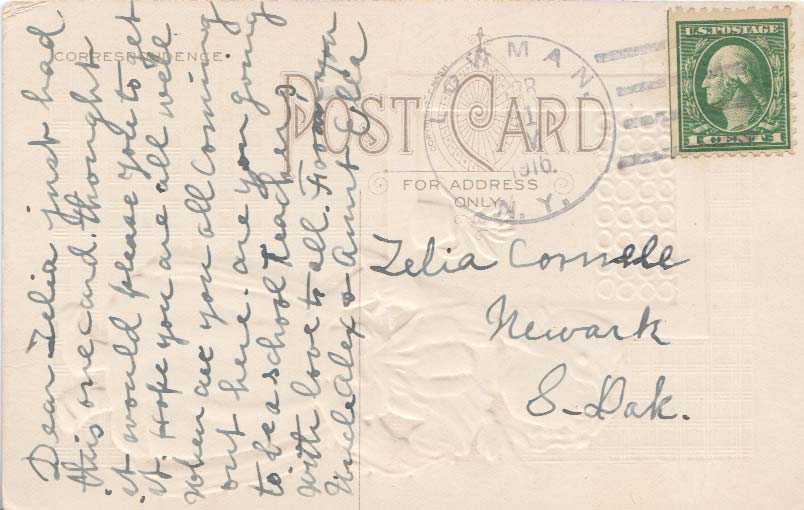 CORRESPONDENCE
POST CARD
FOR ADDRESS
ONLY
LOWMAN,
1916.
N.Y.
U.S. POSTAGE
1 CENT 1
Dear Zelia just had
this one card. thought
it would please you to get
it. Hope you are all well
When are you all coming
out here. are you going
to be a school teacher?
with love to all. From your
Uncle Alex & Aunt Ella
Zelia Cornell
Newark
S-Dak.